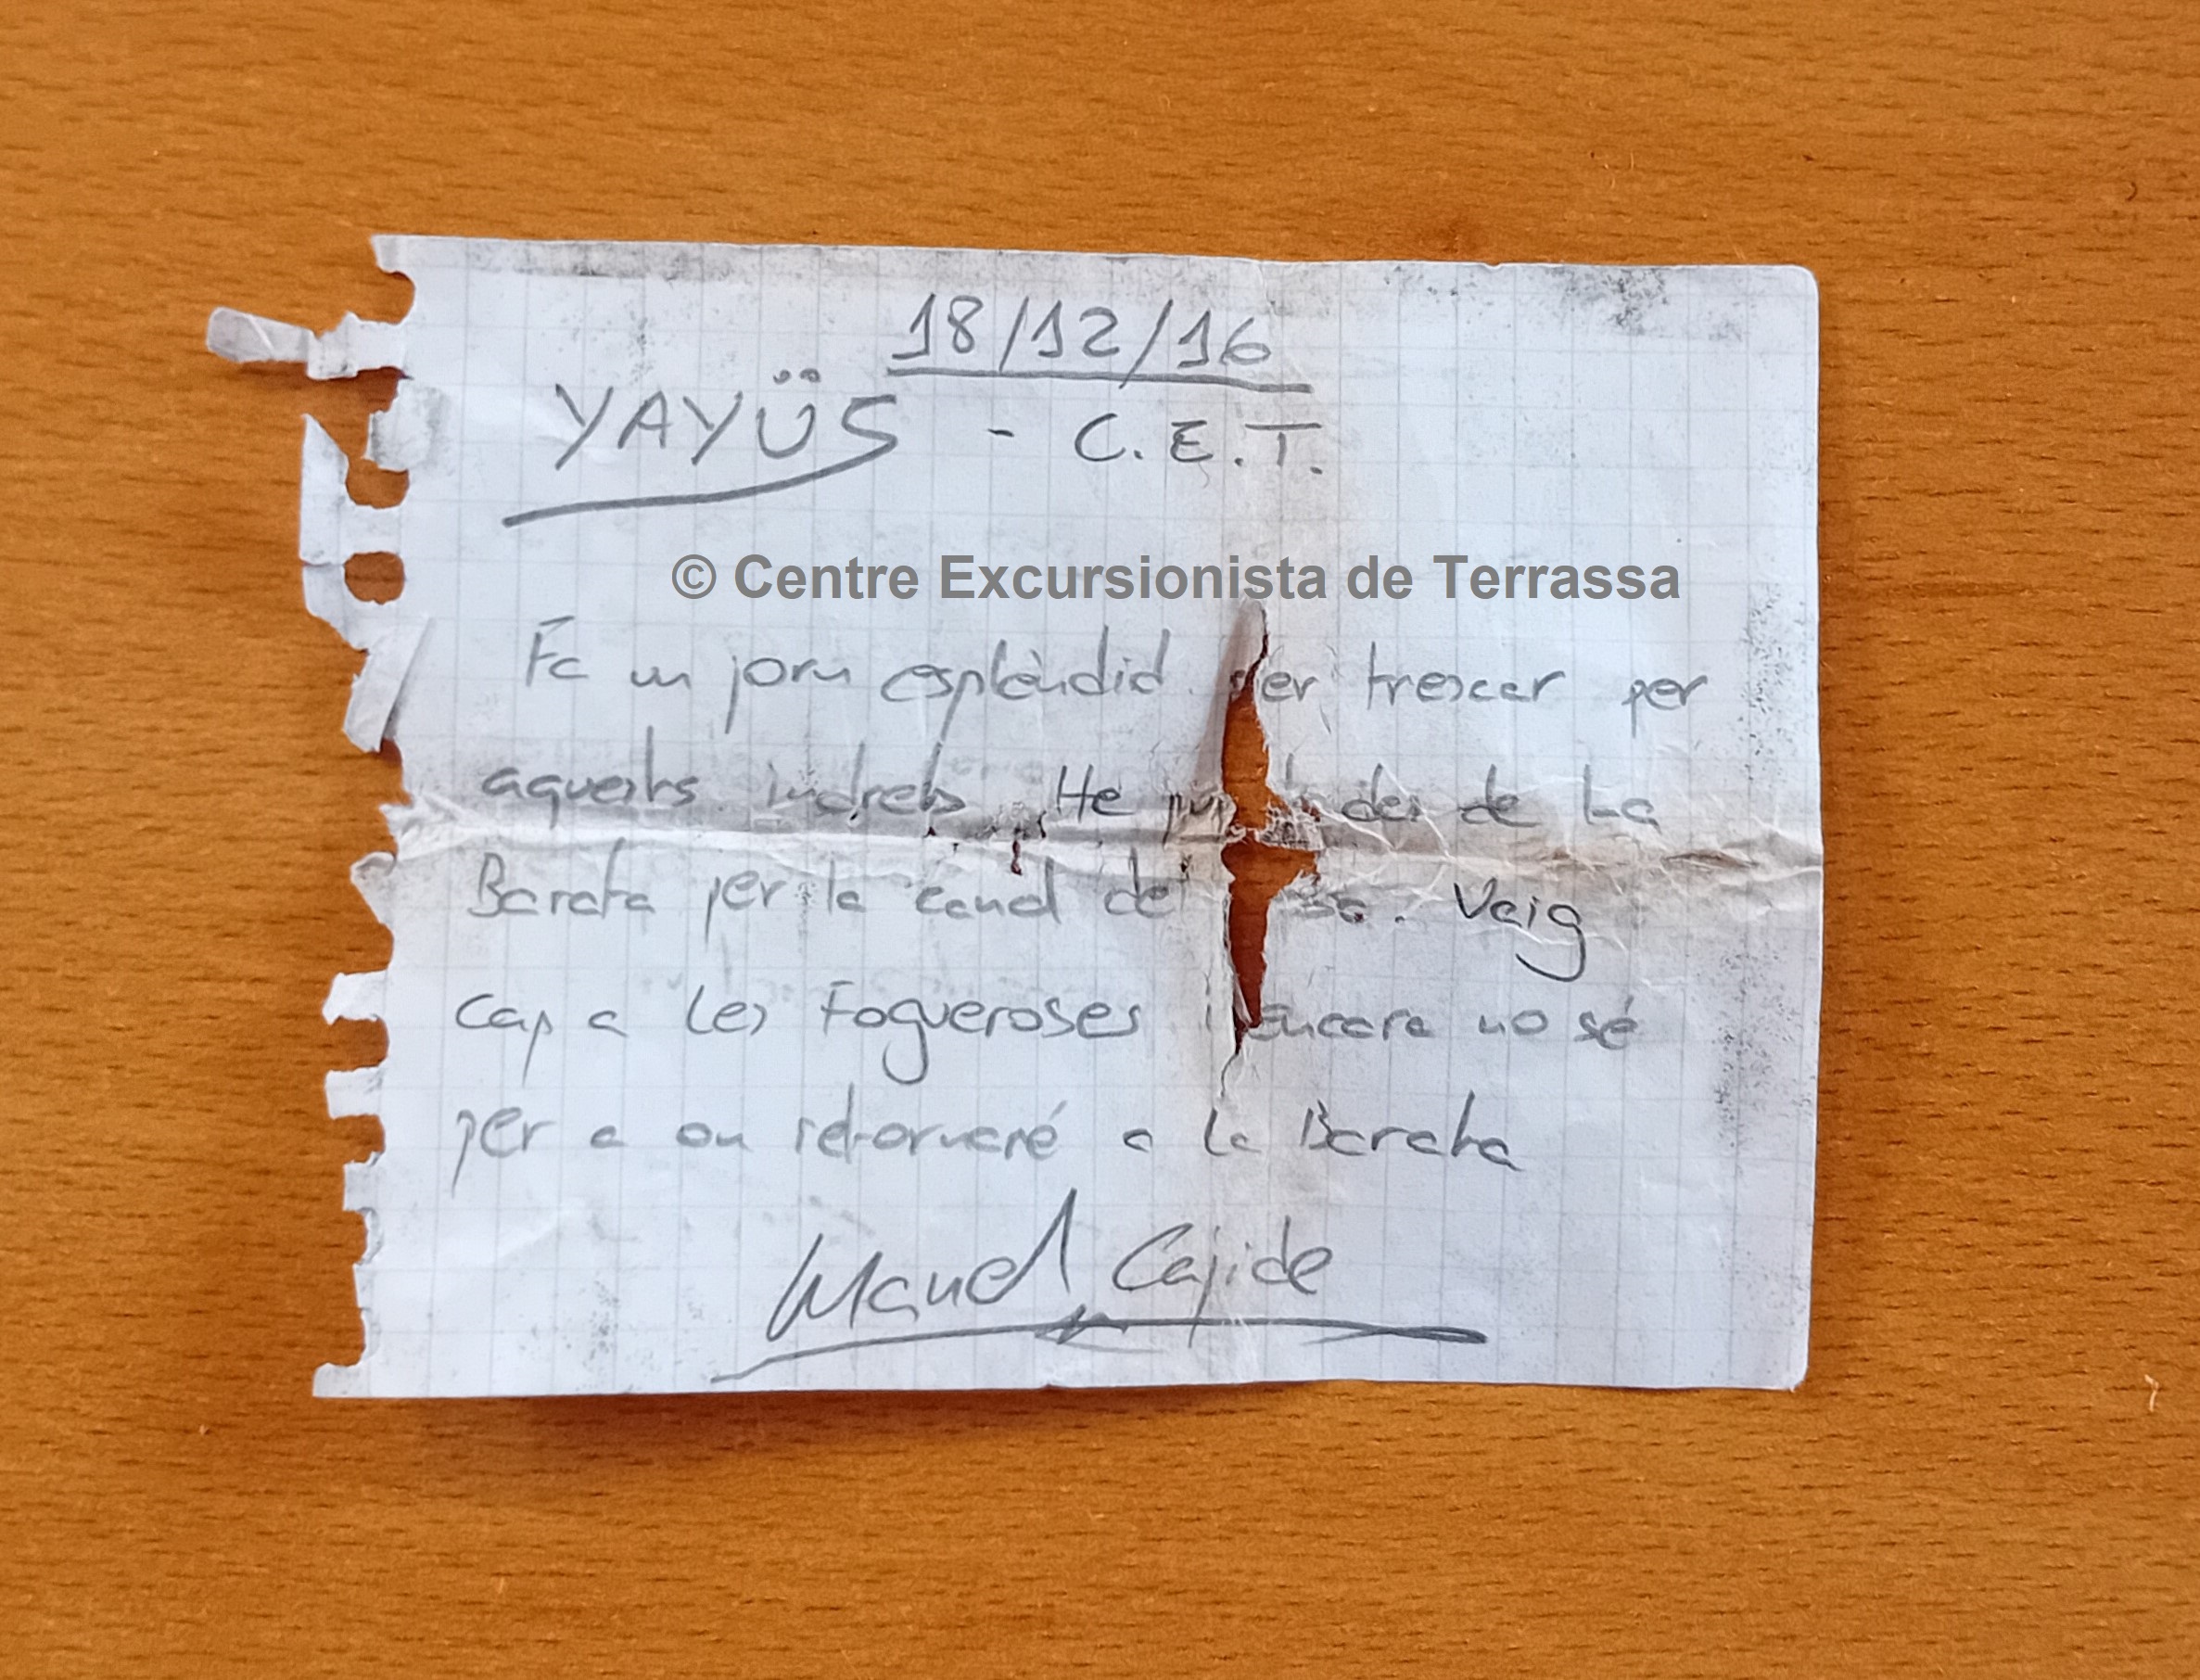 18/12/16
YAYÜS - C.E.T.
© Centre Excursionista de Terrassa
Fa un jorn esplèndid per trescar per
aquests indrets. He des de La
Barata per la canal de. Vaig
cap a les Fogueroses i encara no sé
per a on retornaré a la Barata
Manel Cajide